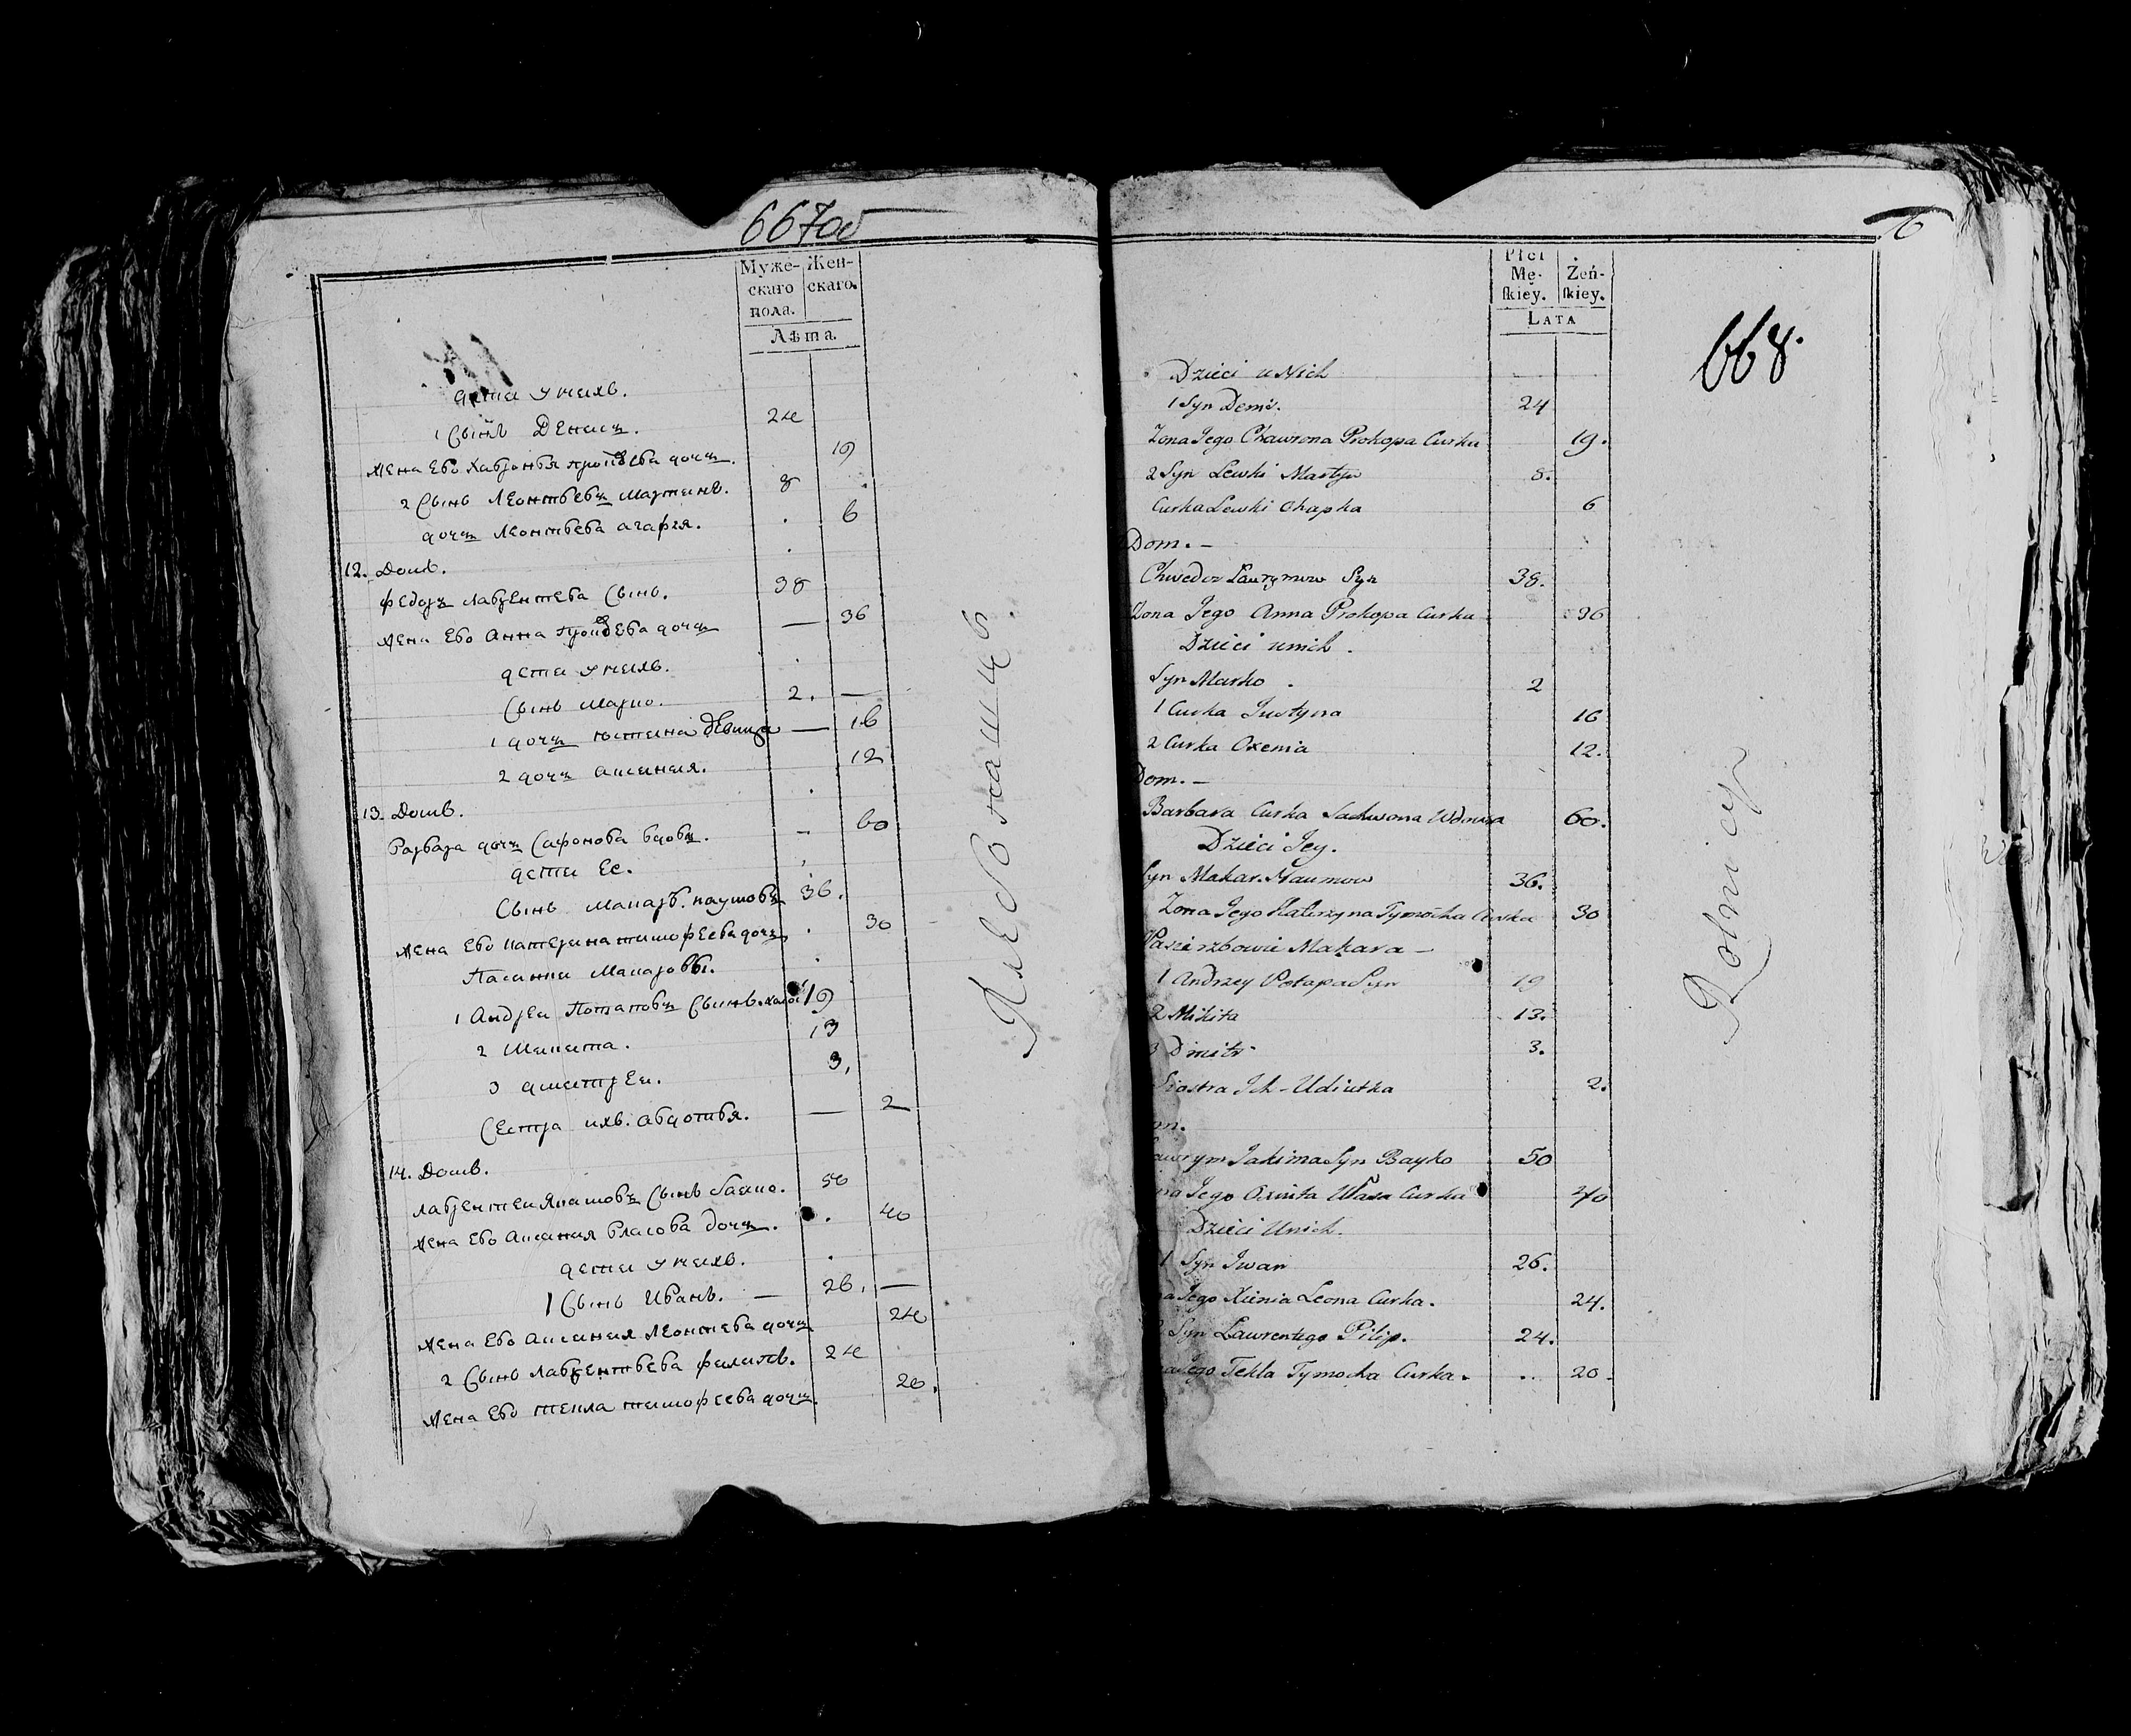 667об
Муже-
скаго
пола.
Жен-
скаго.
Лѣта.
дети у нихъ.
1 Сынъ Денисъ. 24
Жена Ево Хавронья прокофева дочь. 19
2 Сынъ Леонтьевъ мартинъ. 8
дочь Леонтьева агафия. 6
12. Домъ.
Федоръ лаврентева Сынъ. 38
Жена Ево Анна прокофева дочь 36
дети у нихъ.
Сынъ марко. 2.
1 дочь юстина девица 16
2 дочь аксиния. 12
13. Домъ.
Варвара дочь Сафонова вдова. 60
дети Ее.
Сынъ макаръ наумовъ 36.
Жена Ево катерина тимофеева дочь 30
Пасинки макаровы.
1 Андрей Потаповъ Сынъ 19
2 Микита. 13
3 дмитрей. 3,
Сестра ихъ авдотья. 2
14. Домъ.
лаврентей якимовъ Сынъ байко. 50
Жена Ево аксиния власова дочь. 40
дети у нихъ.
1 Сынъ Иванъ. 26.
Жена Ево аксиния леонтева дочь 24
2 Сынъ лаврентьева филипъ. 24
Жена Ево текла тимофеева дочь. 20.
Хлебопашцы.
6
Płci
Mę-
skiey.
Żeń-
skiey.
LATA
668.
Dzieci u Nich
1 Syn Demi. 24
Zona Jego Chawrona Prokopa Curka 19.
2 Syn Lewki Martyn 8.
Curka Lewki Ohapka 6
Dom. –
Chwedor Lawrymow Syn 38.
Zona Jego Anna Prokopa Curka 36
Dzieci u nich.
Syn Marko. 2
1 Curka Justyna 16
2 Curka Oxenia 12.
Dom. –
Barbara Curka Sachwona Wdowa 60.
Dzieci Jey.
Syn Makar Naumow 36.
Zona Jego Katerzyna Tymocha Curka 30
Pasierzbowie Makara –
1 Andrzey Potapa Syn 19
2 Mikita 13.
3 Dmitr 3.
Siostra Ich – Udiutka 2.
om.
awrym Jakima Syn Bayko 50
na Jego Oxinia Własa Curka 40
Dzieci U nich.
1 Syn Iwan 26.
a Jego Xienia Leona Curka. 24.
2 Syn Lawrentego Pilip. 24.
a Jego Tekla Tymocha Curka. 20.
Rolnicy